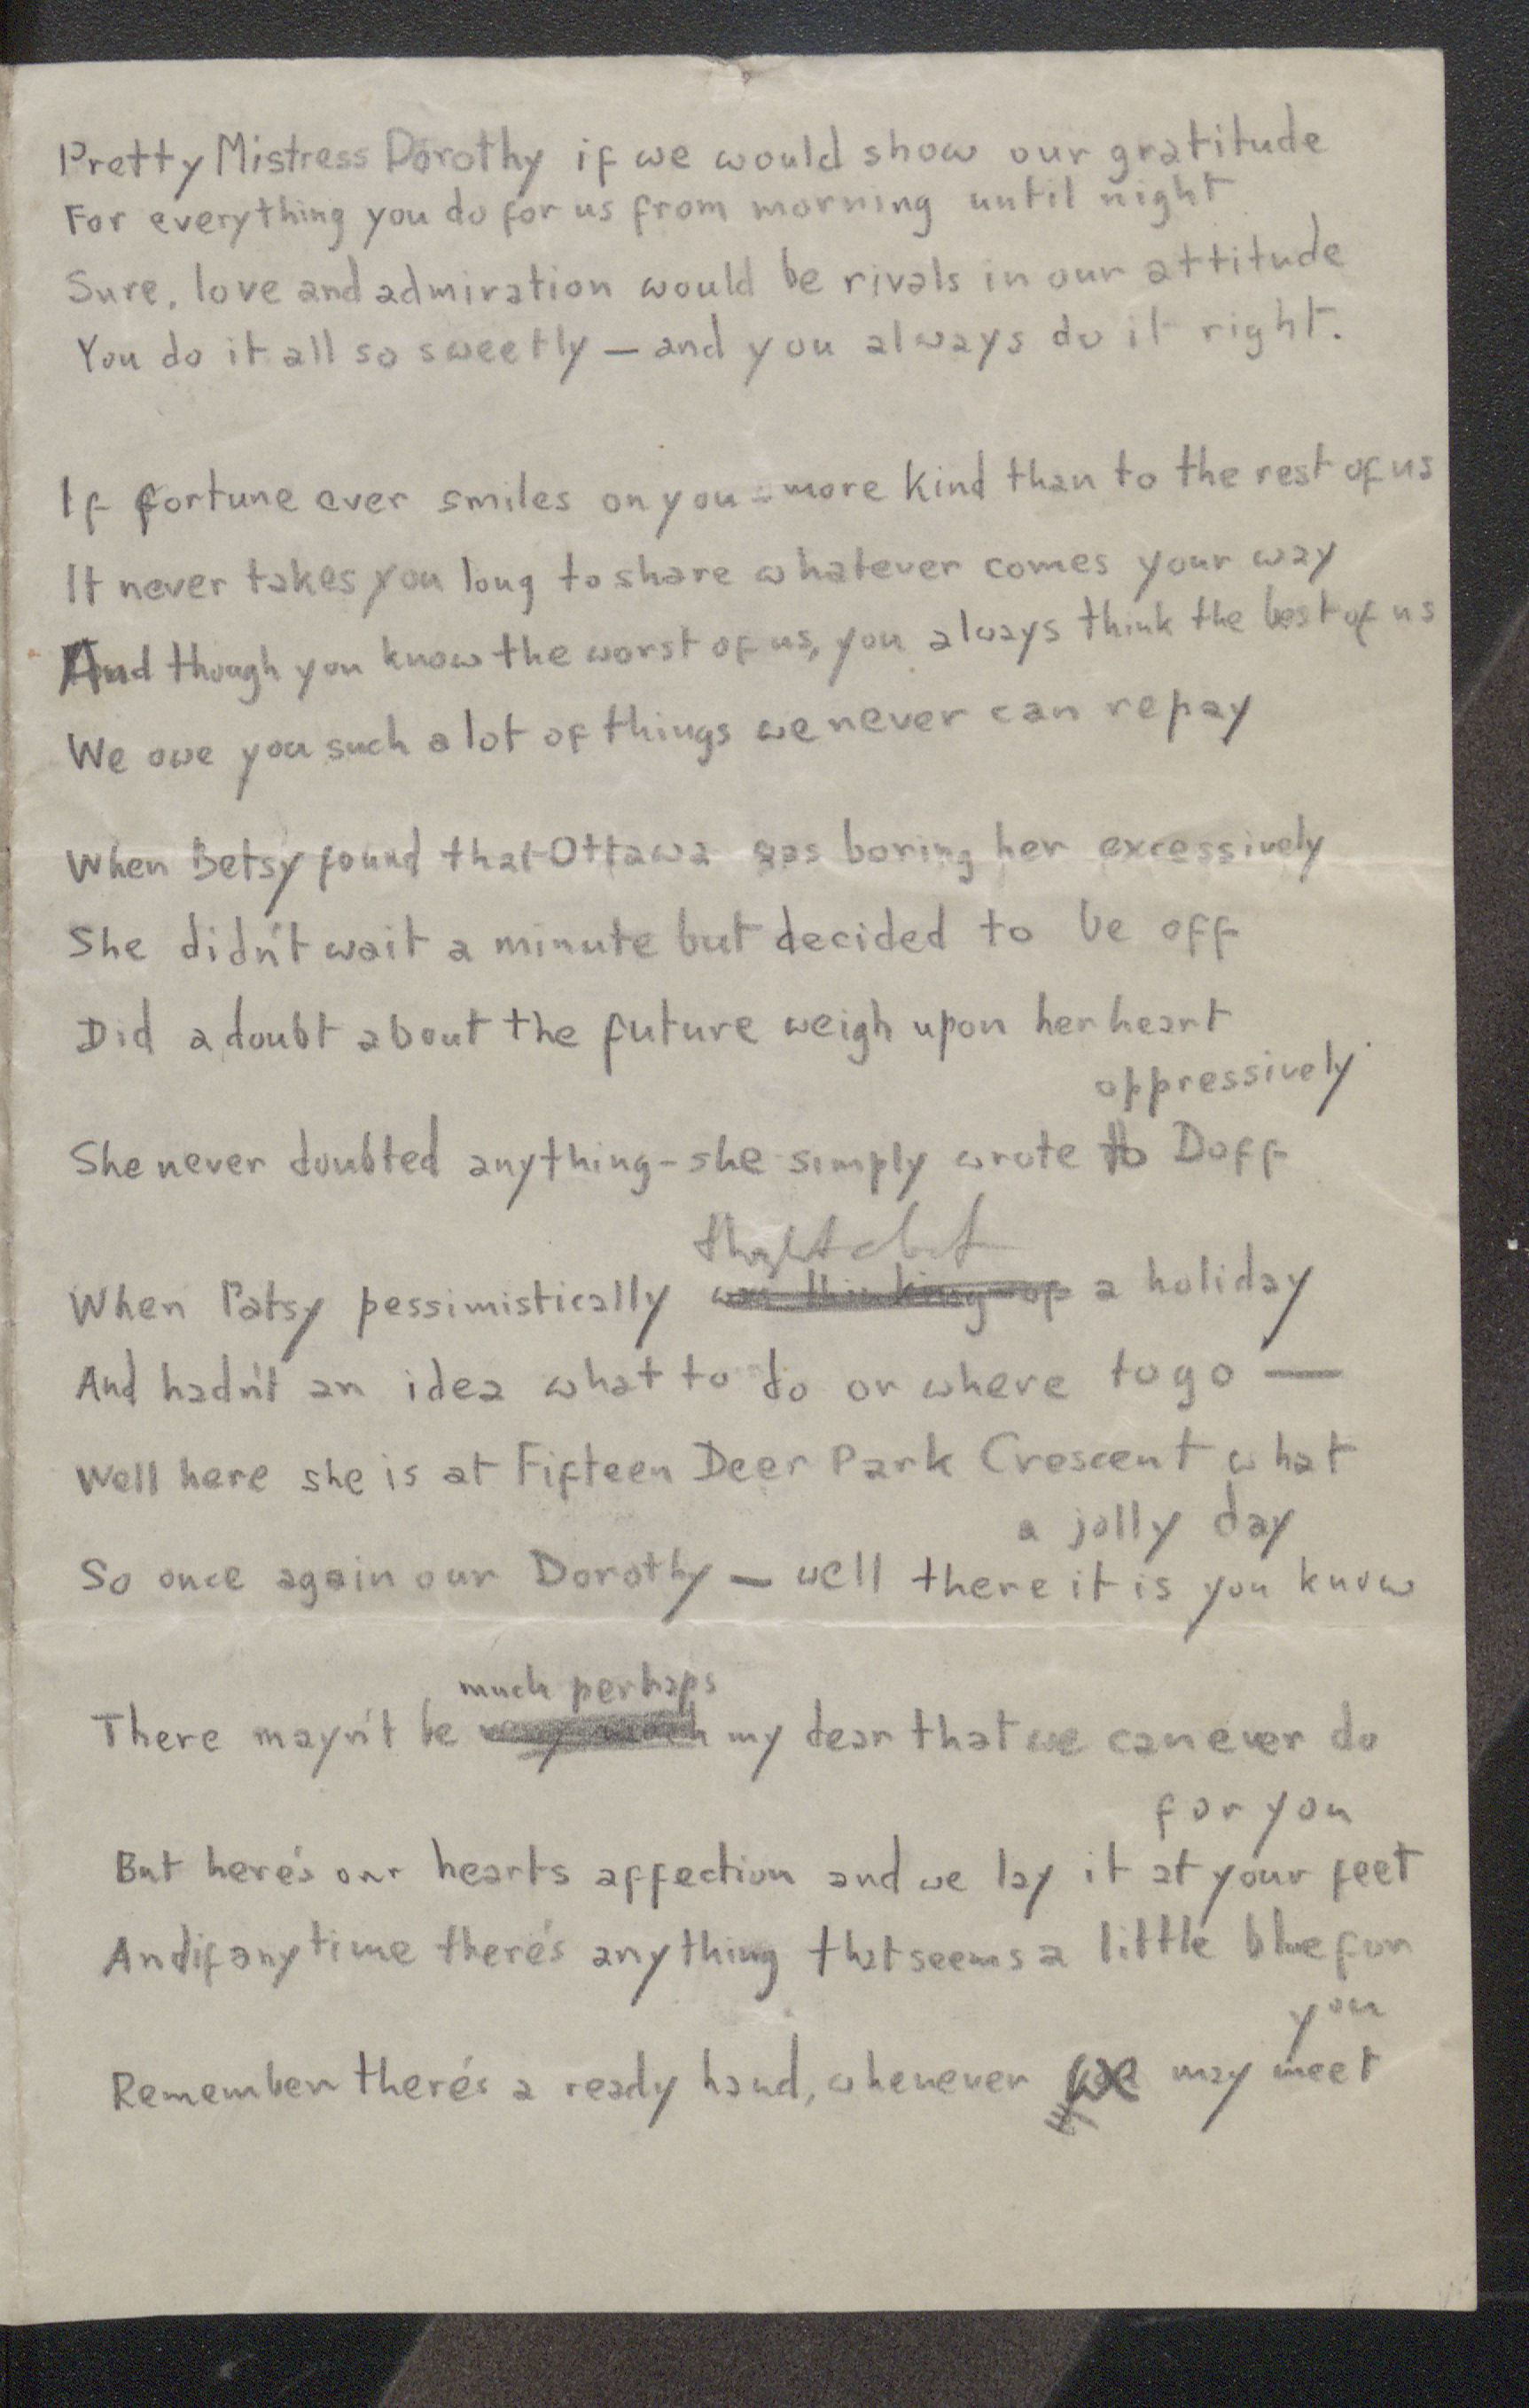 Pretty Mistress Dorothy if we would show our gratitude
For everything you do for us from morning until night
Sure, love and admiration would be rivals in our attitude
You do it all so sweetly — and you always do it right.
If fortune ever smiles on you more kind than to the rest of us
It never takes you long to share whatever comes your way
And though you know the worst of us, you always think the best of us
We owe you such a lot of things we never can repay
When Betsy found that Ottawa was boring her excessively
She didn't wait a minute but decided to be off
Did a doubt about the future weigh upon her heart
oppressively
She never doubted anything - she simply wrote to Doff
thought about
When Patsy pessimistically was thinking of a holiday
And hadn't an idea what to do or where to go —
Well here she is at Fifteen Deer Park Crescent what
a jolly day
So once again our Dorothy — well there it is you know
much perhaps
There mayn't be very much my dear that we can ever do
for you
But here's our hearts affection and we lay it at your feet
And if any time there's anything that seems a little blue for
you
Remember there's a ready hand, whenever we may meet